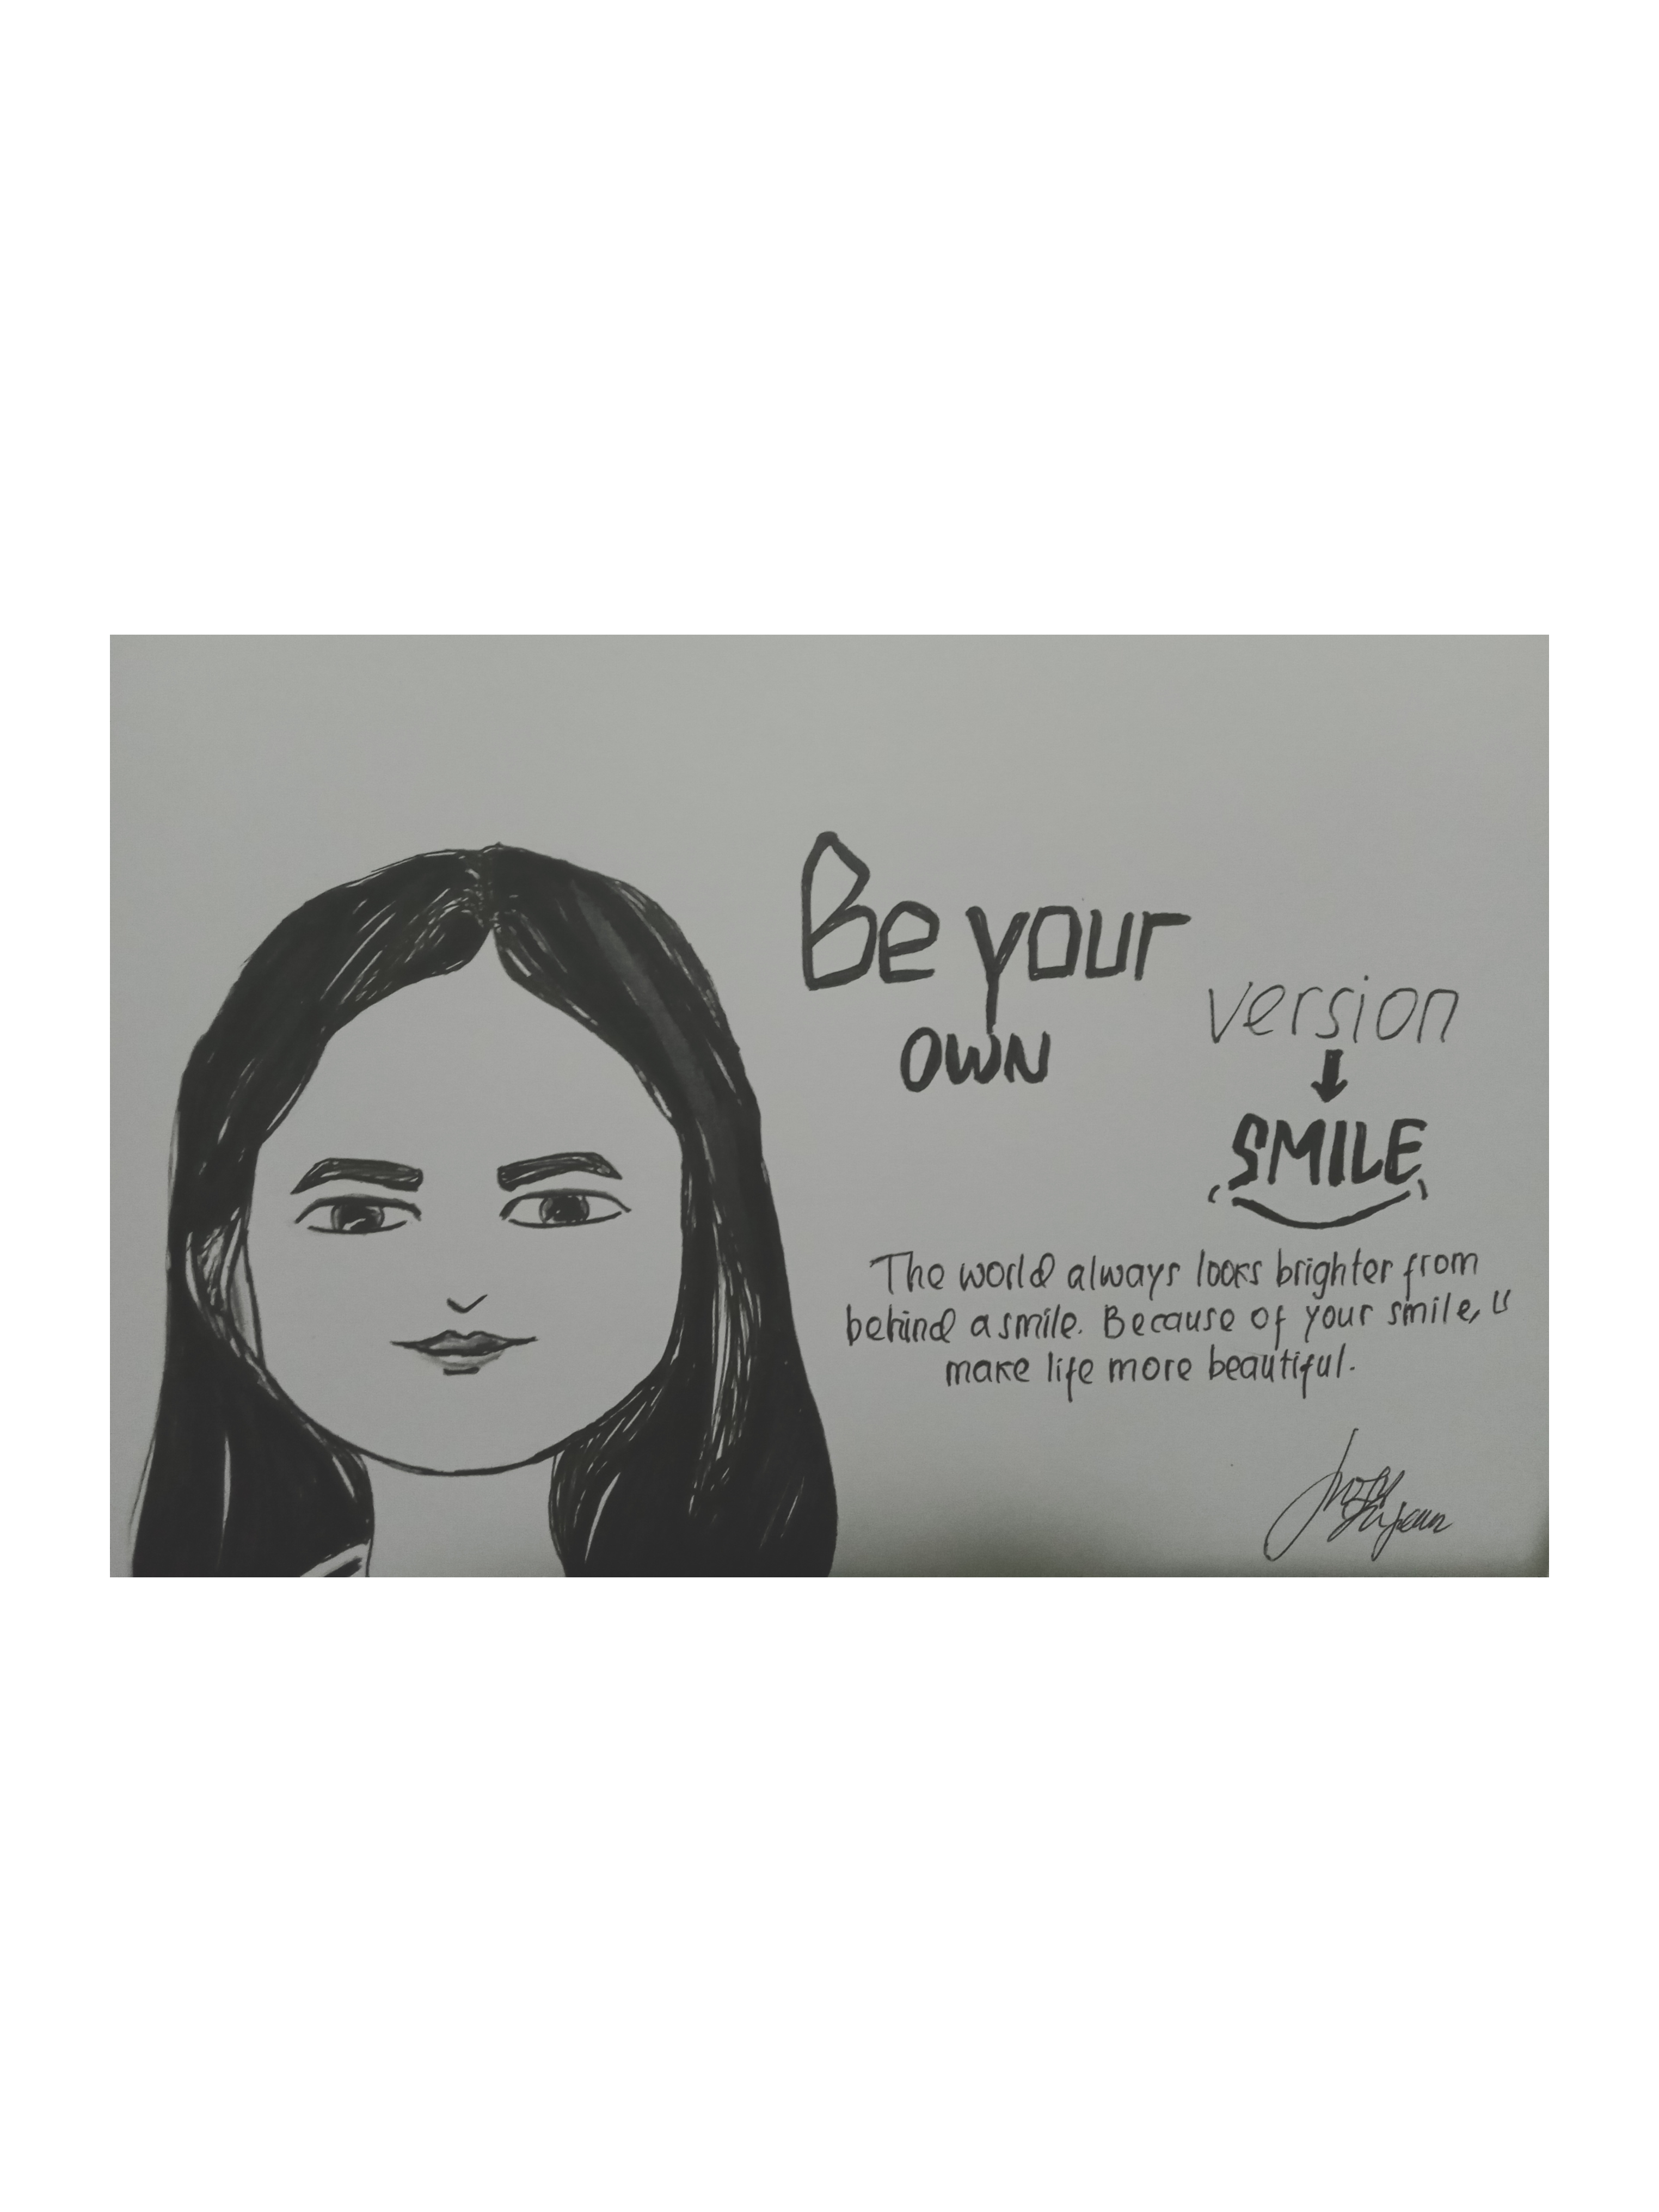 Be your
own
version
SMILE
The world always looks brighter from
behind a smile. Because of your smile, u
make life more beautiful.